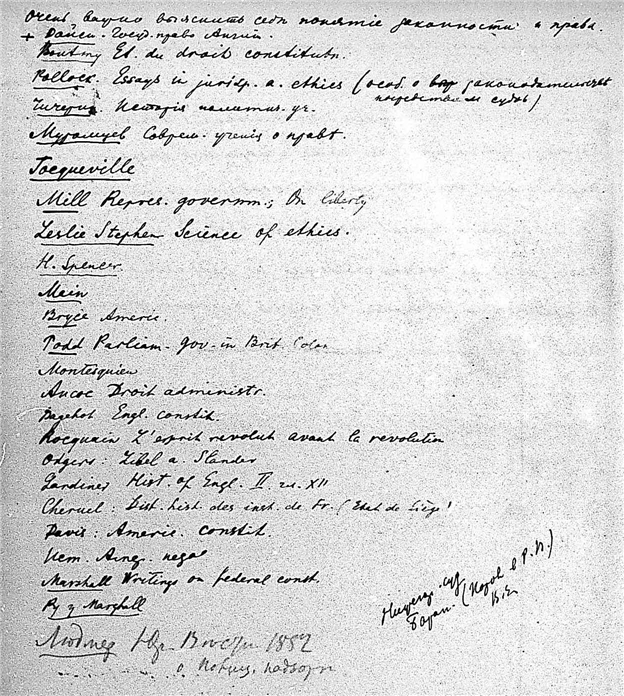 Очень важно выяснить себе понятие законности и права.
+ Дайси. Госуд. право Англии.
Boutmy Et. du droit constitutn.
Pollock. Essays in jurisp. a. ethics (особ. о законодательстве
посредством судов)
Чичерин. Исторія политич. уч.
Муромцев Соврем. ученія о правѣ.
Tocqueville
Mill Repres. governm.; On liberty
Leslie Stephen Science of ethics.
H. Spencer
Main
Bryce Americ.
Todd Parliam. gov. in Brit. Colon
Montesquieu
Aucoc Droit administr.
Bagehot Engl. constit.
Rocquain L'esprit revolut avant la revolution
Odgers: Libel a. Slander
Gardiner Hist. of Engl. II гл. XII
Cheruel: Dict. hist. des inst. de Fr. (Etat de Siège)
Davis: Americ. constit.
Marshall Writings on federal const.
Marshall
Юр. Вѣстн. 1882
о Полиц. надзоре
В.Е.